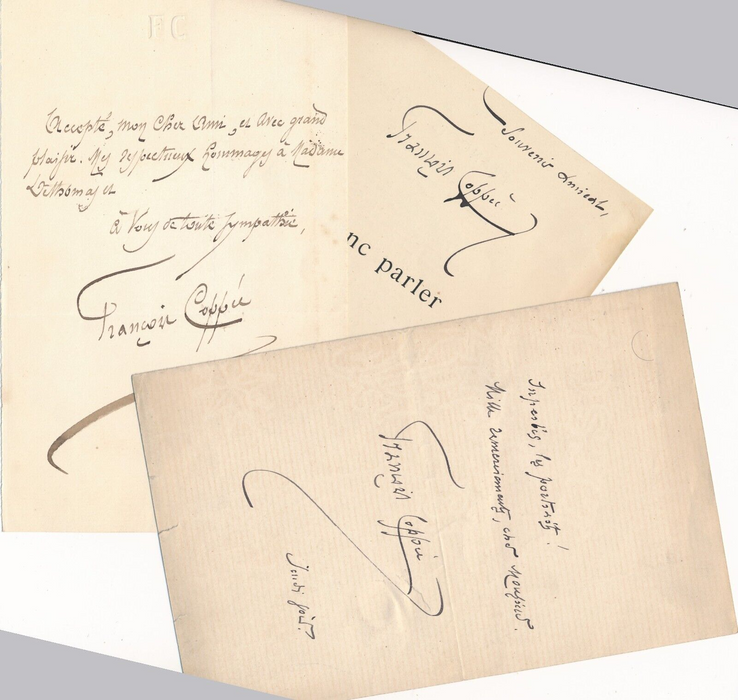 FC
Accepté, mon cher ami, et avec grand
plaisir. Mes respectueux hommages à Madame
Dethomas et
à vous de toute sympathie,
François Coppée
Souvenir amical,
François Coppée
nc parler
Superbes, les portraits !
Mille remerciements, cher Monsieur.
François Coppée
Jeudi soir.